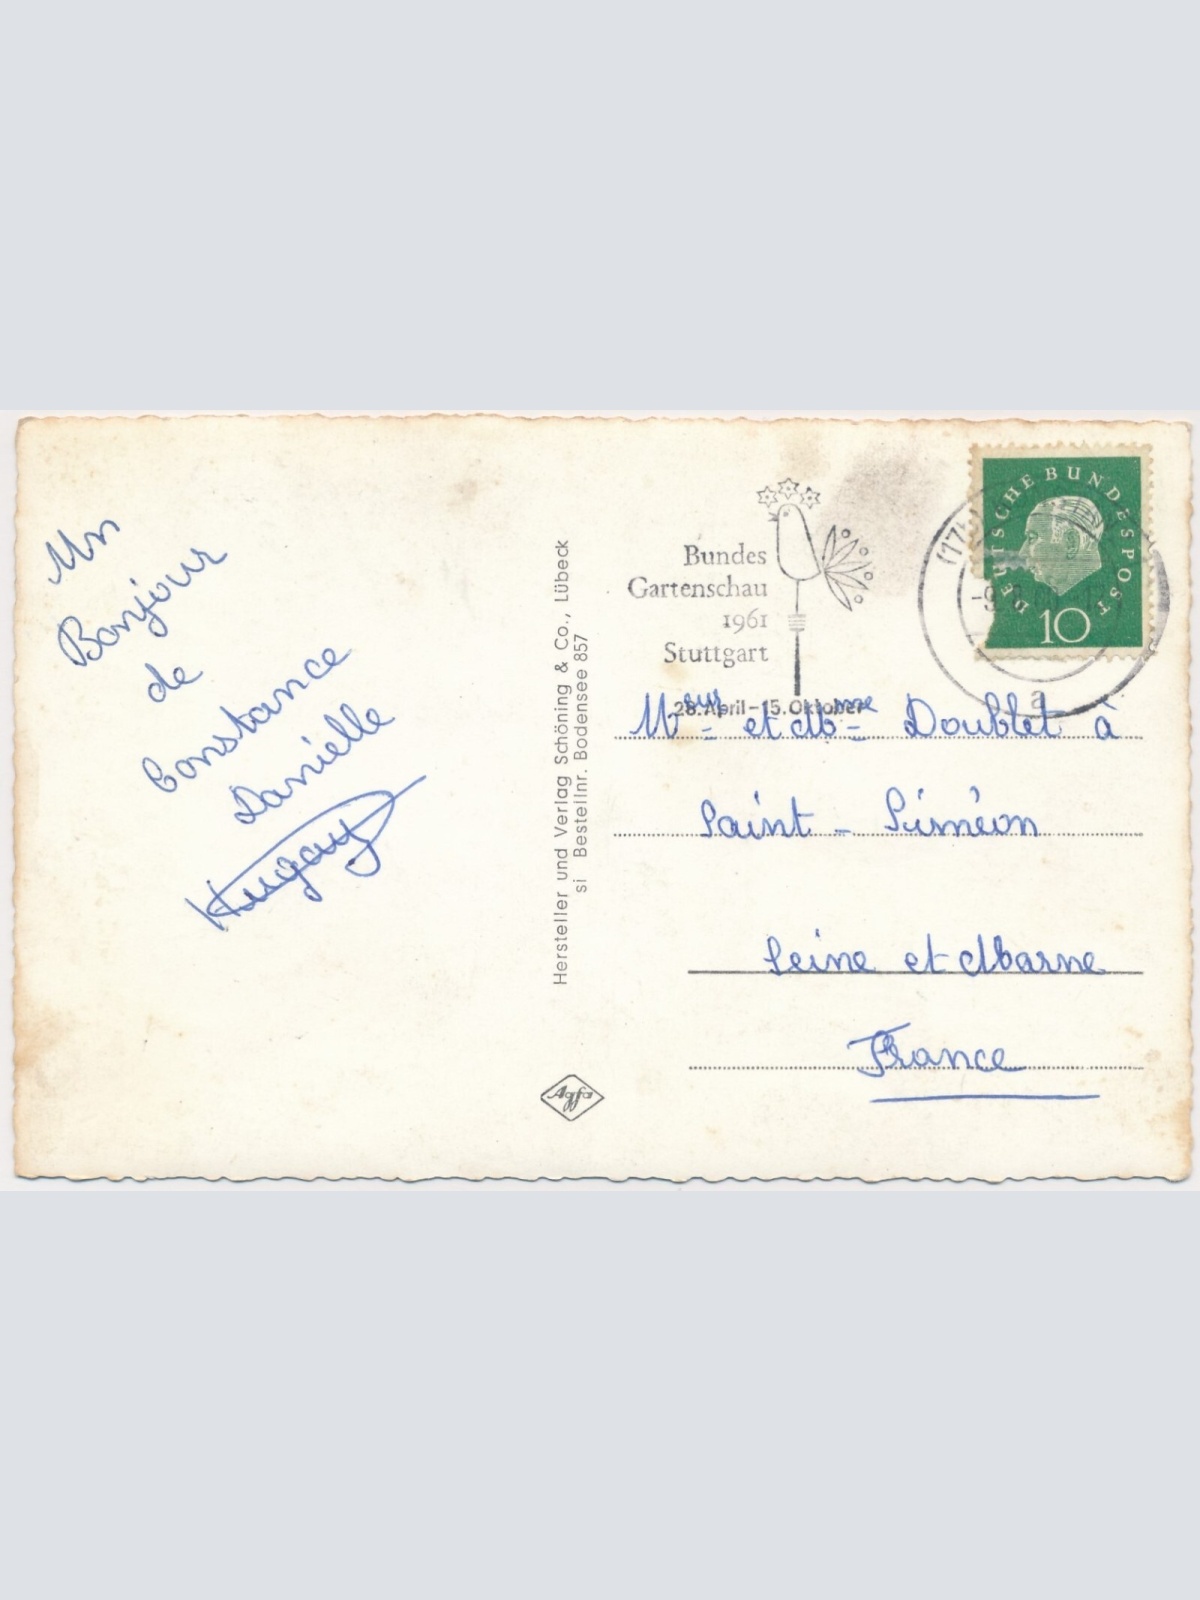 Un
Bonjour
de
Constance
Danielle
Hersteller und Verlag Schöning & Co., Lübeck
si Bestellnr. Bodensee 857
Agfa
Bundes
Gartenschau
1961
Stuttgart
28. April - 15. Oktober
(17
-9
a
DEUTSCHE BUNDESPOST
10
Msur et Mme Doublet à
Saint - Siméon
Seine et Marne
France